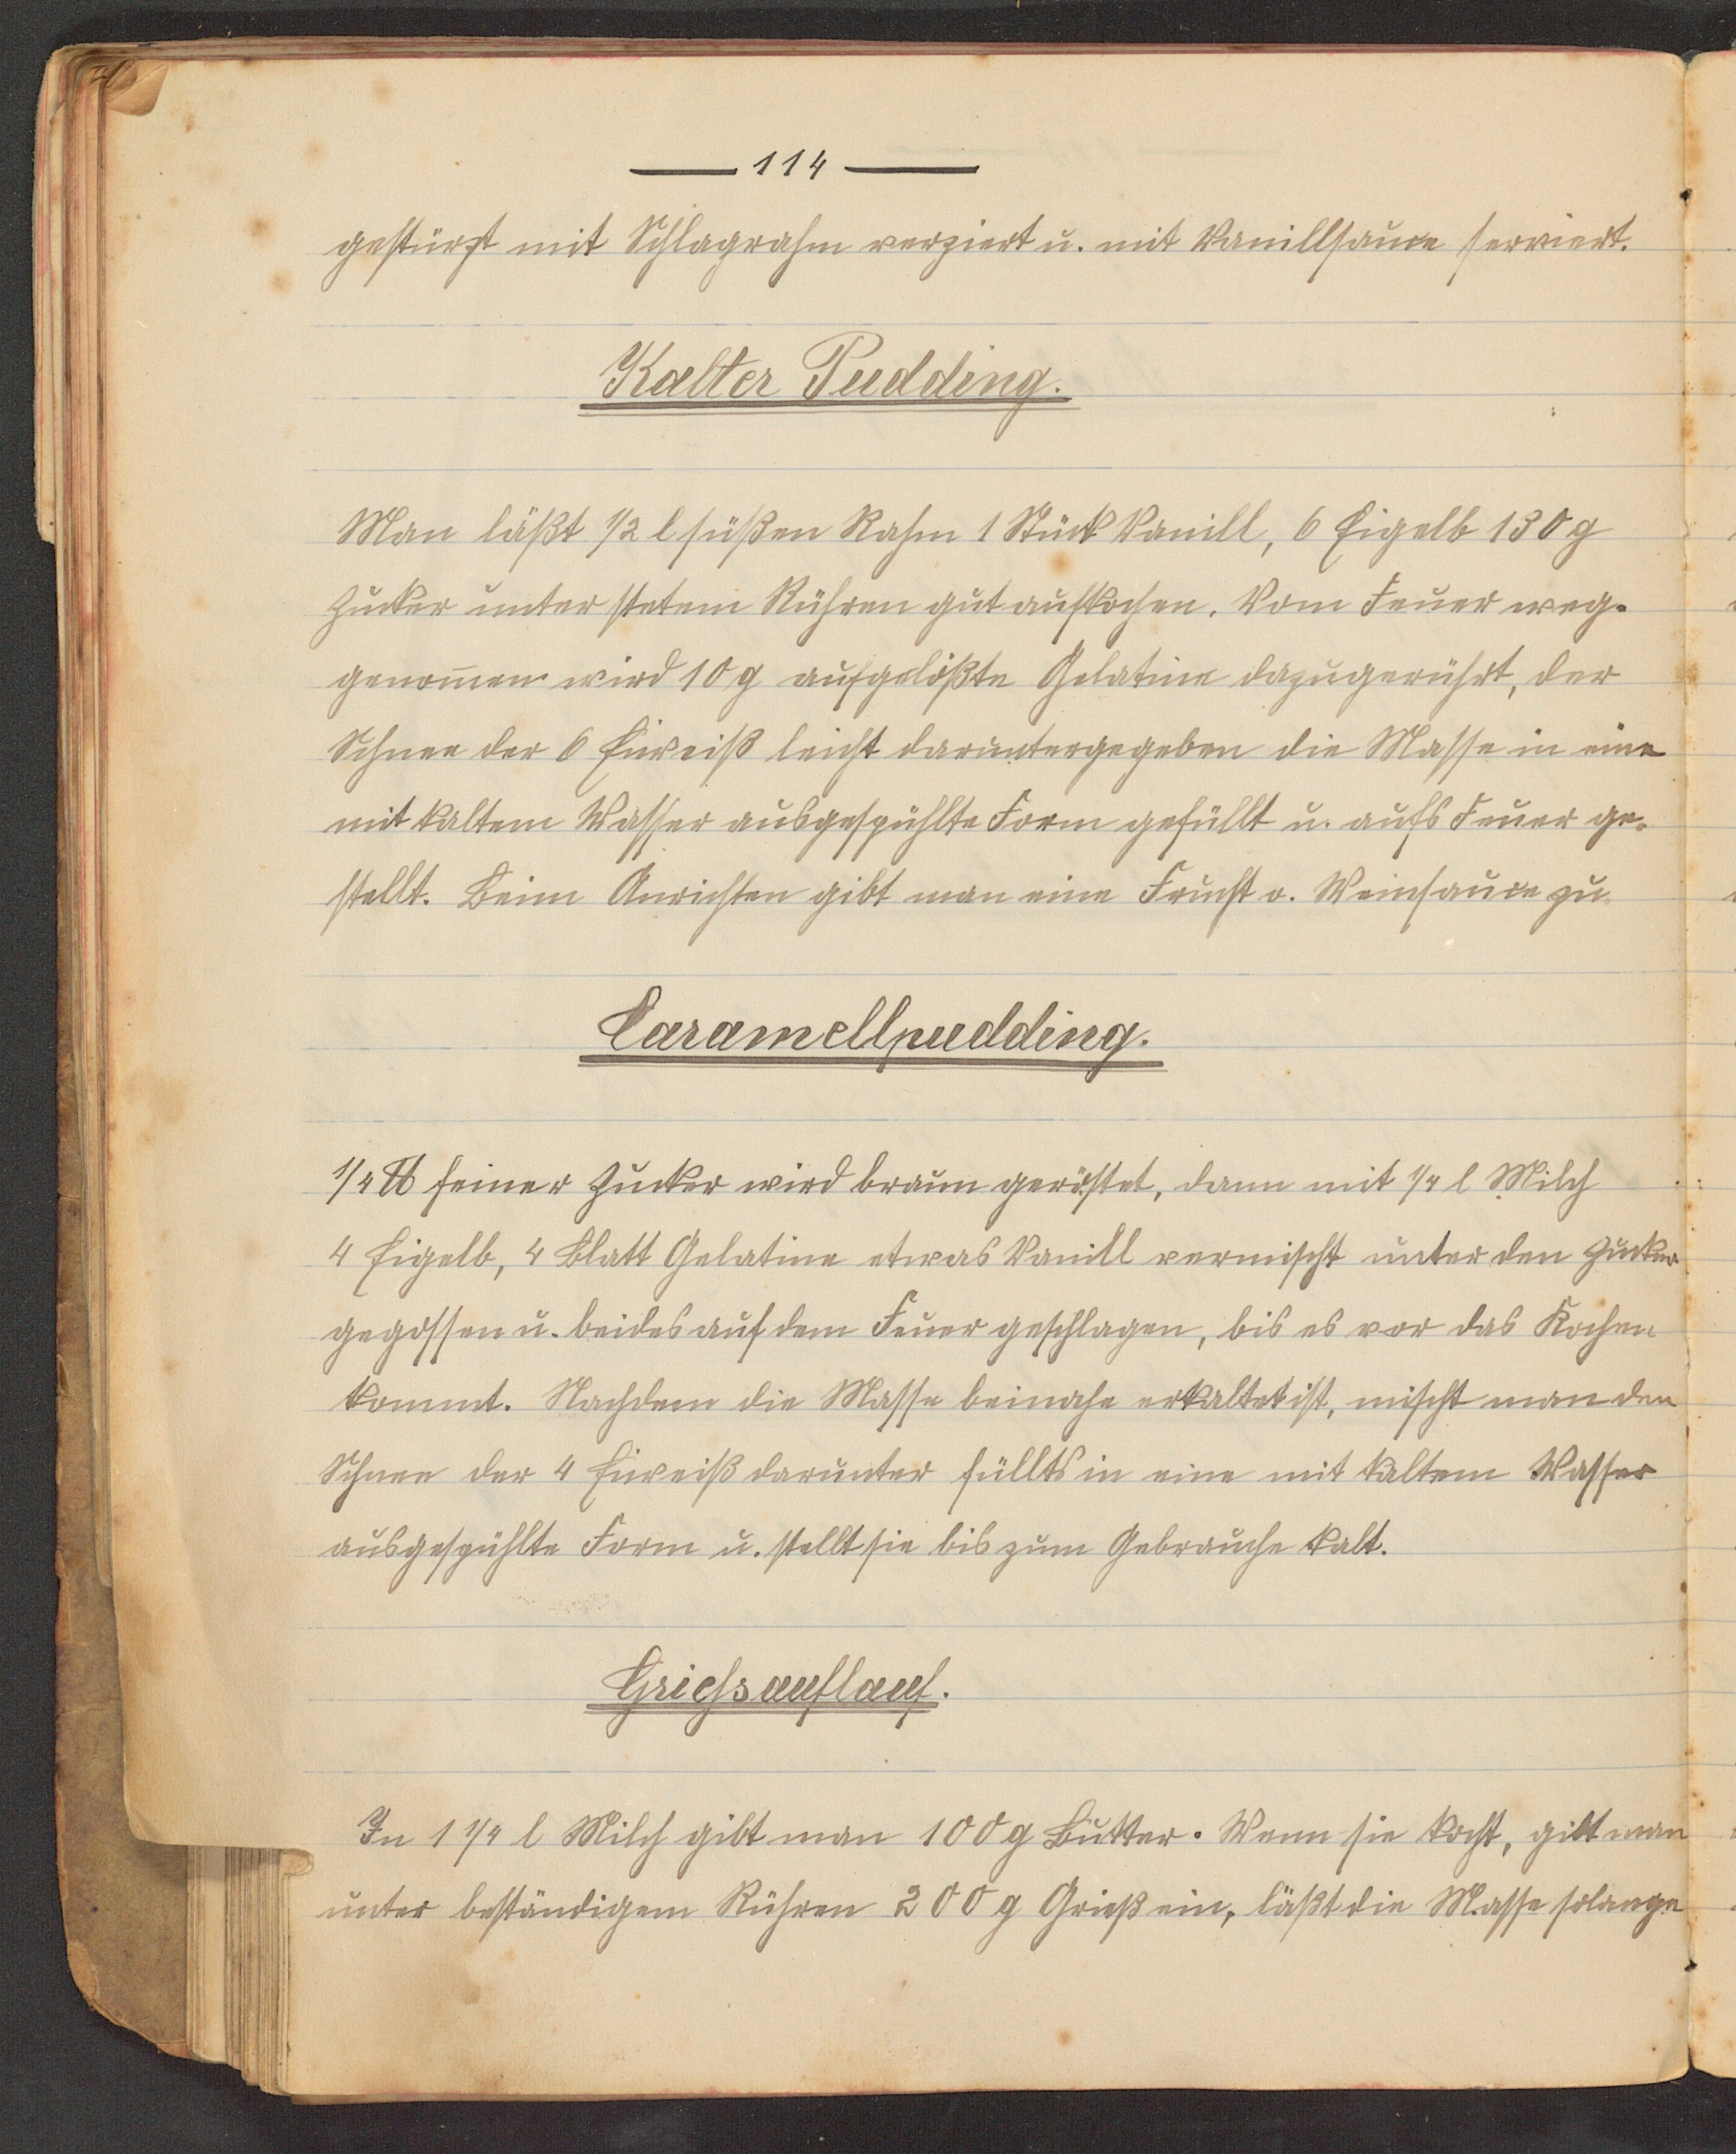 — 114 —
gestürzt mit Schlagrahm verziert u. mit Vanillsauce serviert.
Kalter Pudding.
Man läßt 1/2 l süßen Rahm 1 Stück Vanill, 6 Eigelb 130 g
Zucker unter stetem Rühren gut aufkochen. Vom Feuer weg-
genom̄en wird 10 g aufgelößte Gelatine dazugerührt, der
Schnee der 6 Eiweiß leicht daruntergegeben die Masse in eine
mit kaltem Wasser ausgespühlte Form gefüllt u. aufs Feuer ge-
stellt. Beim Anrichten gibt man eine Frucht o. Weinsauce zu.
Caramellpudding.
1/4 ℔ feiner Zucker wird braun geröstet, dann mit 1/4 l Milch
4 Eigelb, 4 Blatt Gelatine etwas Vanill vermischt unter den Zucker
gegossen u. beides auf dem Feuer geschlagen, bis es vor das Kochen
kommt. Nachdem die Masse beinahe erkaltet ist, mischt man den
Schnee der 4 Eiweiß darunter füllts in eine mit kaltem Wasser
ausgespühlte Form u. stellt sie bis zum Gebrauche kalt.
Griessauflauf.
In 1 1/4 l Milch gibt man 100 g Butter. Wenn sie kocht, gibt man
unter beständigem Rühren 200 g Grieß ein, läßt die Masse solange